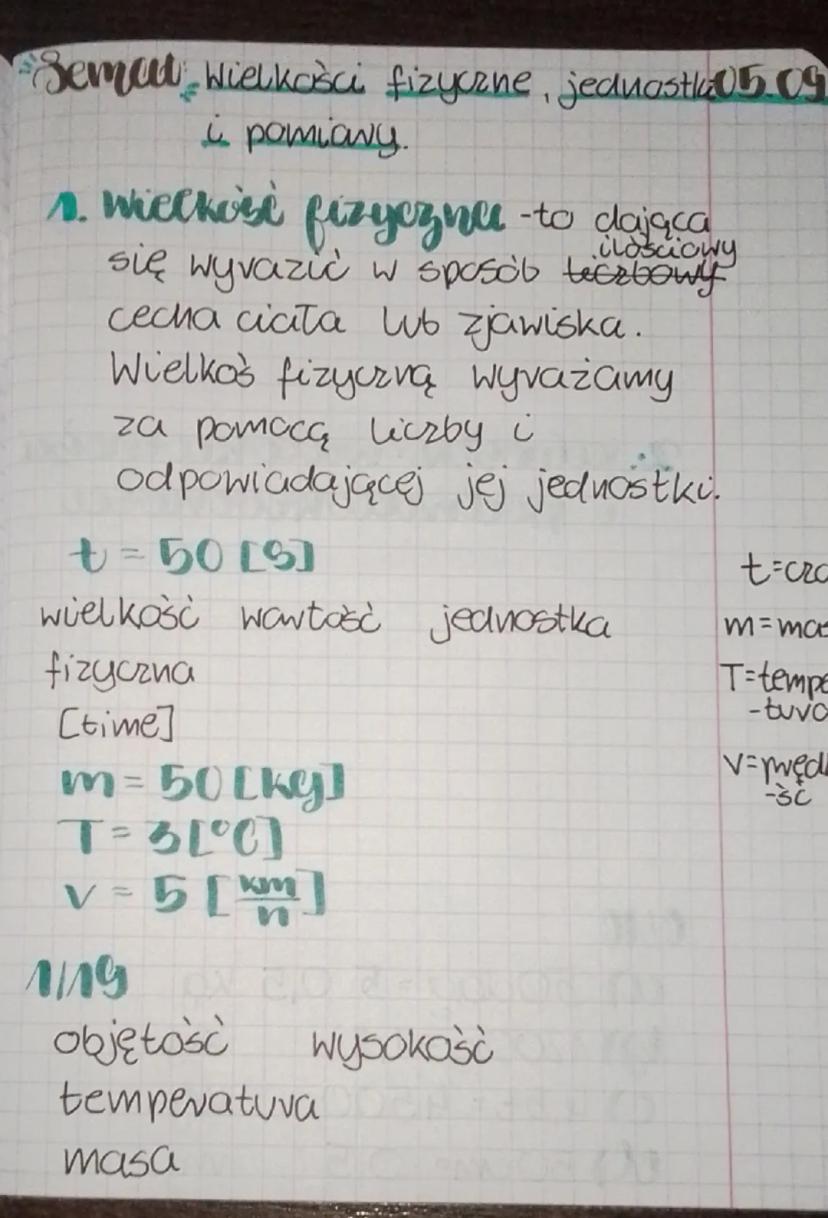 Temat: Wielkości fizyczne, jednostki 05.09
i pomiary.
1. Wielkość fizyczna - to dająca
się wyrazić w sposób liczbowy ilościowy
cecha ciała lub zjawiska.
Wielkoś fizyczną wyrażamy
za pomocą liczby i
odpowiadającej jej jednostki.
t = 50 [s]
wielkość wartość jednostka
fizyczna
[time]
m = 50 [kg]
T = 3 [°C]
v = 5 [km/h]
t=cza
m=mas
T=tempe
-tura
v=pręd
-ść
1/19
objętość wysokość
temperatura
masa